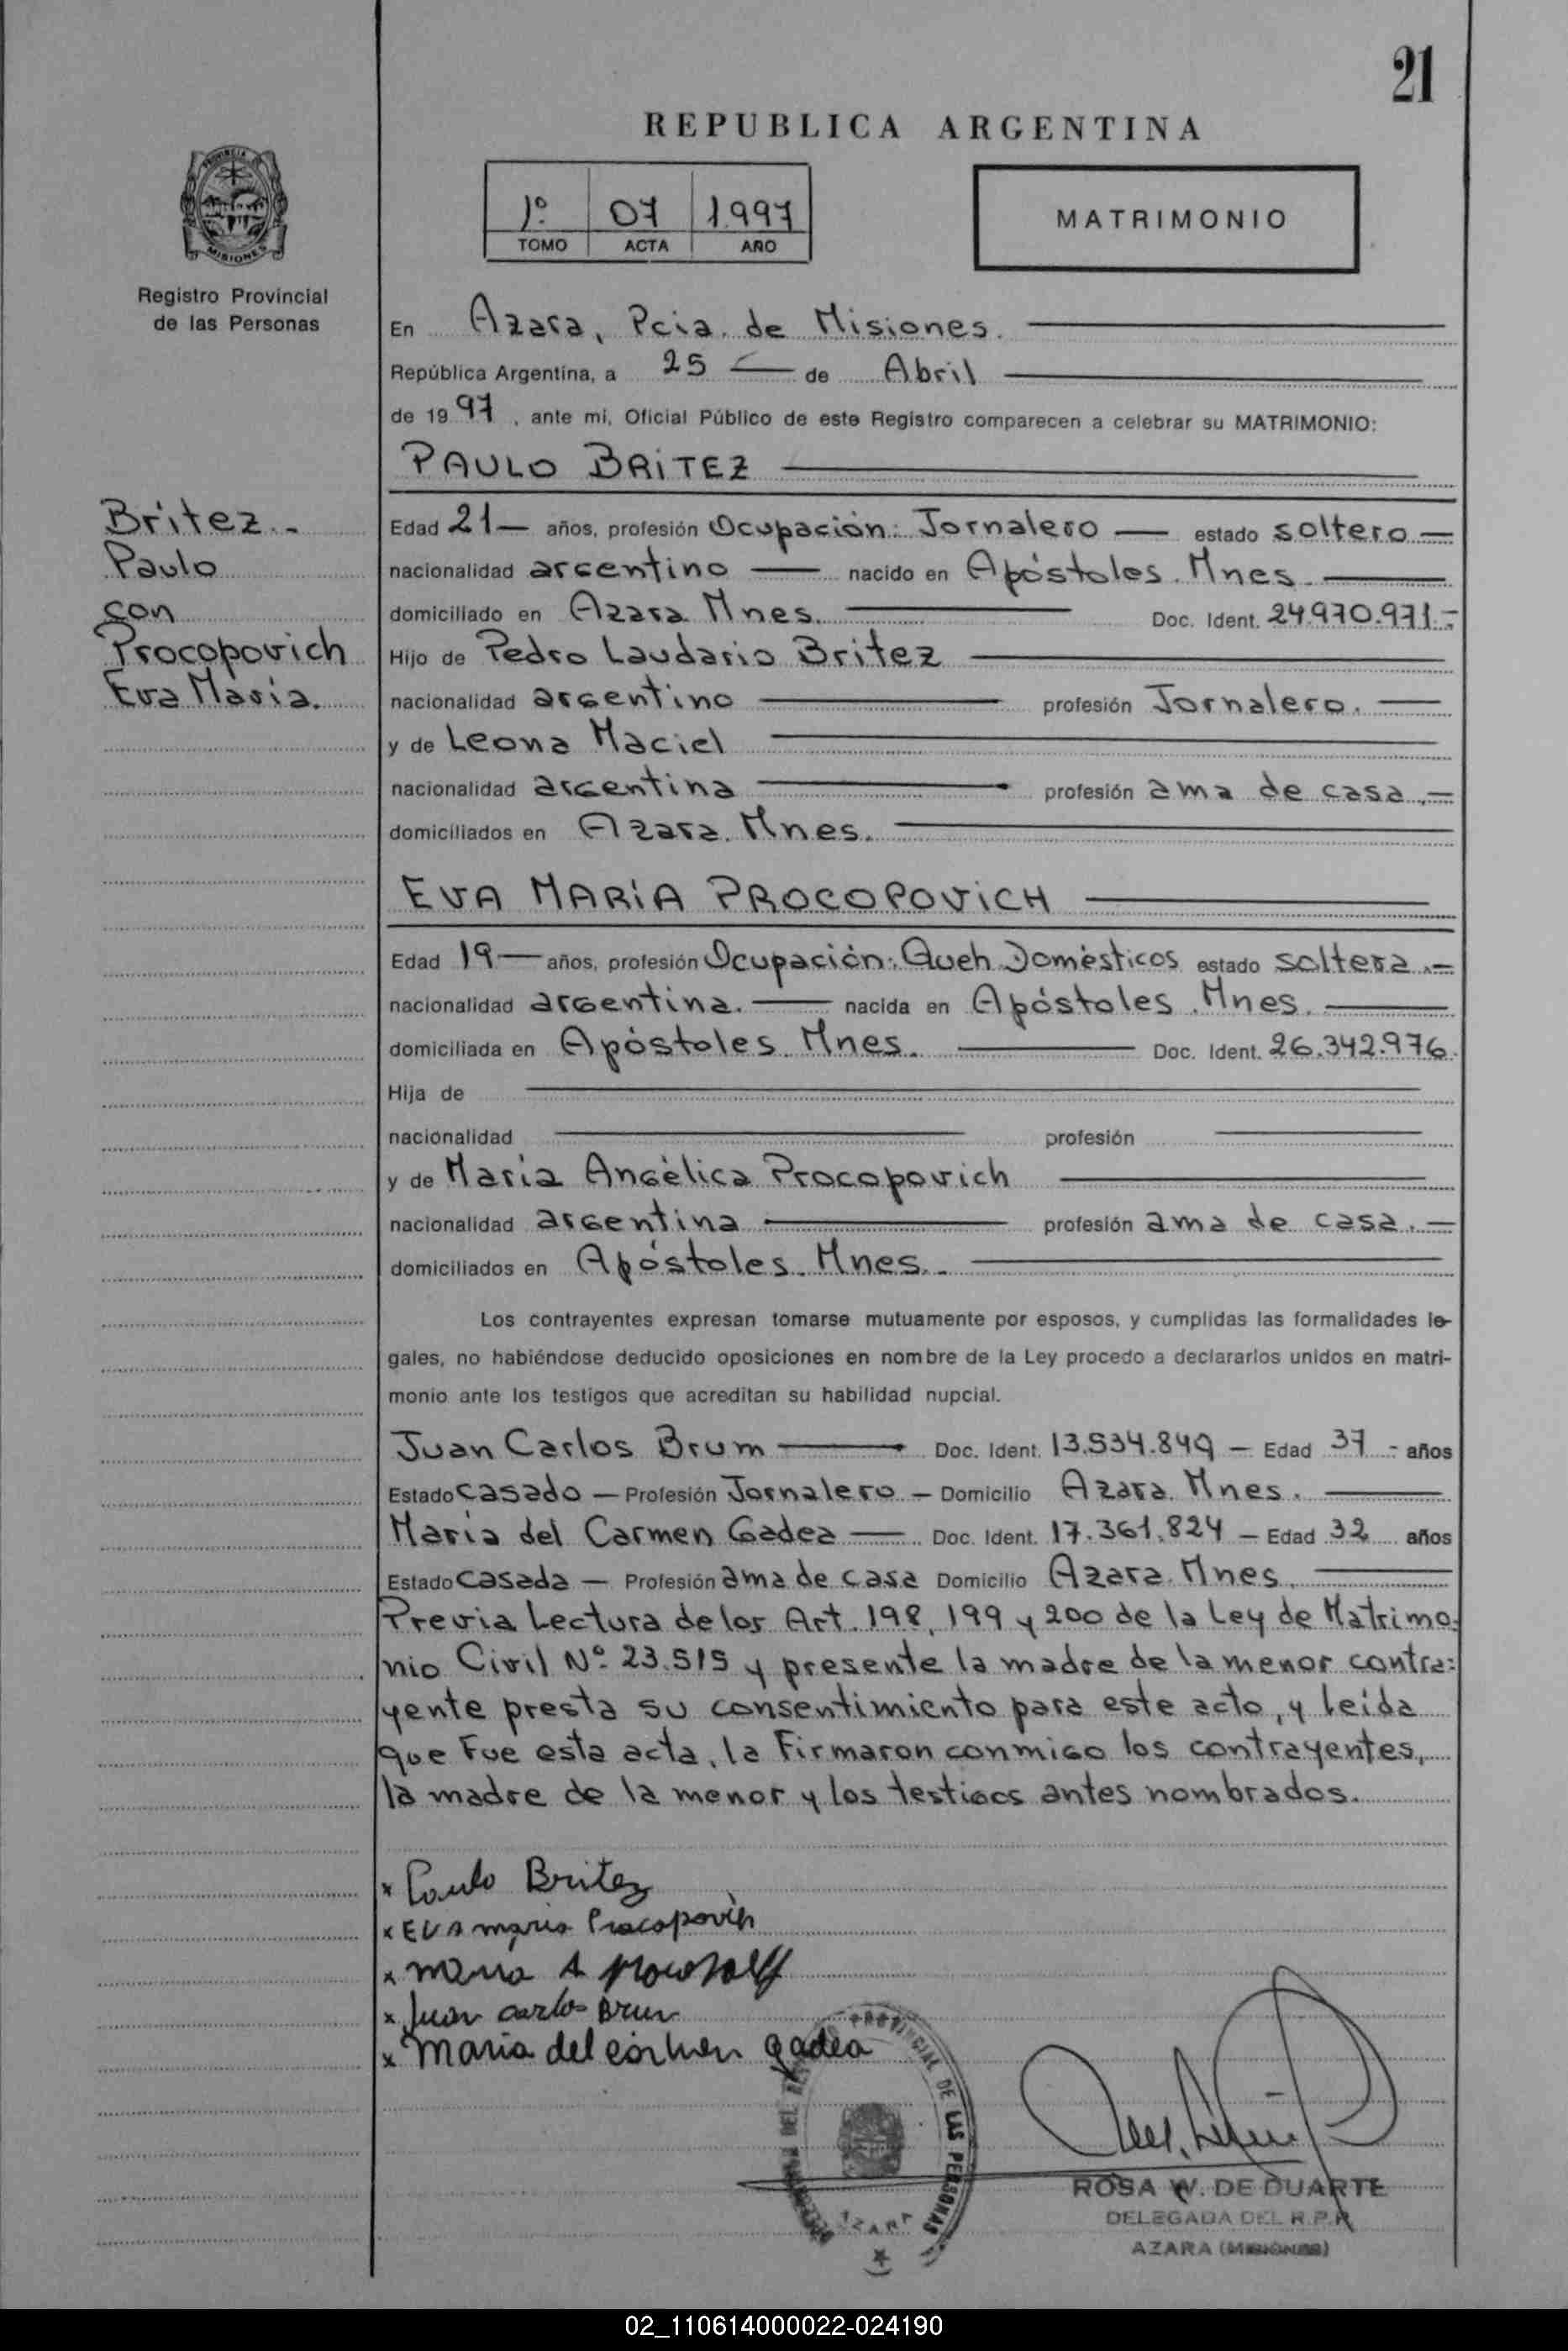 21
REPUBLICA ARGENTINA
1º 07 1997
TOMO ACTA AÑO
MATRIMONIO
PROVINCIA DE MISIONES
Registro Provincial
de las Personas
En Azara, Pcia. de Misiones.
República Argentina, a 25 de Abril
de 19 97, ante mi, Oficial Público de este Registro comparecen a celebrar su MATRIMONIO:
PAULO BRITEZ
Britez.-
Paulo
con
Procopovich
Eva María.
Edad 21 años, profesión Ocupación: Jornalero estado soltero
nacionalidad argentino nacido en Apóstoles. Mnes.
domiciliado en Azara Mnes. Doc. Ident. 24.970.971.-
Hijo de Pedro Laudario Britez
nacionalidad argentino profesión Jornalero.
y de Leona Maciel
nacionalidad argentina profesión ama de casa.-
domiciliados en Azara. Mnes.
EVA MARÍA PROCOPOVICH
Edad 19 años, profesión Ocupación: Queh. Domésticos estado soltera.-
nacionalidad argentina. nacida en Apóstoles. Mnes.
domiciliada en Apóstoles Mnes. Doc. Ident. 26.342.976.
Hija de
nacionalidad profesión
y de María Angélica Procopovich
nacionalidad argentina profesión ama de casa.
domiciliados en Apóstoles. Mnes.
Los contrayentes expresan tomarse mutuamente por esposos, y cumplidas las formalidades le-
gales, no habiéndose deducido oposiciones en nombre de la Ley procedo a declararlos unidos en matri-
monio ante los testigos que acreditan su habilidad nupcial.
Juan Carlos Brum Doc. Ident. 13.534.849 - Edad 37 - años
Estado casado - Profesión Jornalero - Domicilio Azara. Mnes.
María del Carmen Gadea Doc. Ident. 17.361.824 - Edad 32 años
Estado casada - Profesión ama de casa Domicilio Azara. Mnes.
Previa Lectura de los Art. 198, 199 y 200 de la Ley de Matrimo-
nio Civil Nº 23.515 y presente la madre de la menor contra=
yente presta su consentimiento para este acto, y leída
que fue esta acta, la firmaron conmigo los contrayentes,
la madre de la menor y los testigos antes nombrados.
x Paulo Britez
x EVA maria Procopovich
x maria A
x Juan carlos Brum
x Maria del carmen gadea
PROVINCIAL DE LAS PERSONAS
AZARA
ROSA W. DE DUARTE
DELEGADA DEL R.P.P.
AZARA (MISIONES)
02_110614000022-024190